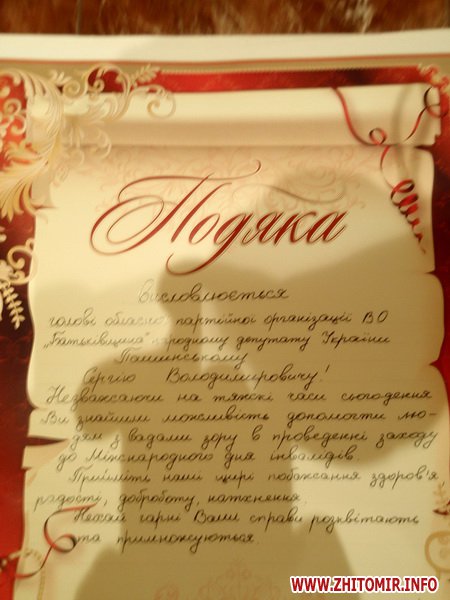 Подяка
Висловлюється
голові обласної партійної організації ВО
„Батьківщина" народному депутату України
Пашинському
Сергію Володимировичу!
Незважаючи на тяжкі часи сьогодення
Ви знайшли можливість допомогти лю-
дям з вадами зору в проведенні заходу
до Міжнародного дня інвалідів.
Прийміть наші щирі побажання здоров'я,
радості, добробуту, натхнення.
Нехай гарні Ваші справи розквітають
та примножуються.
WWW.ZHITOMIR.INFO